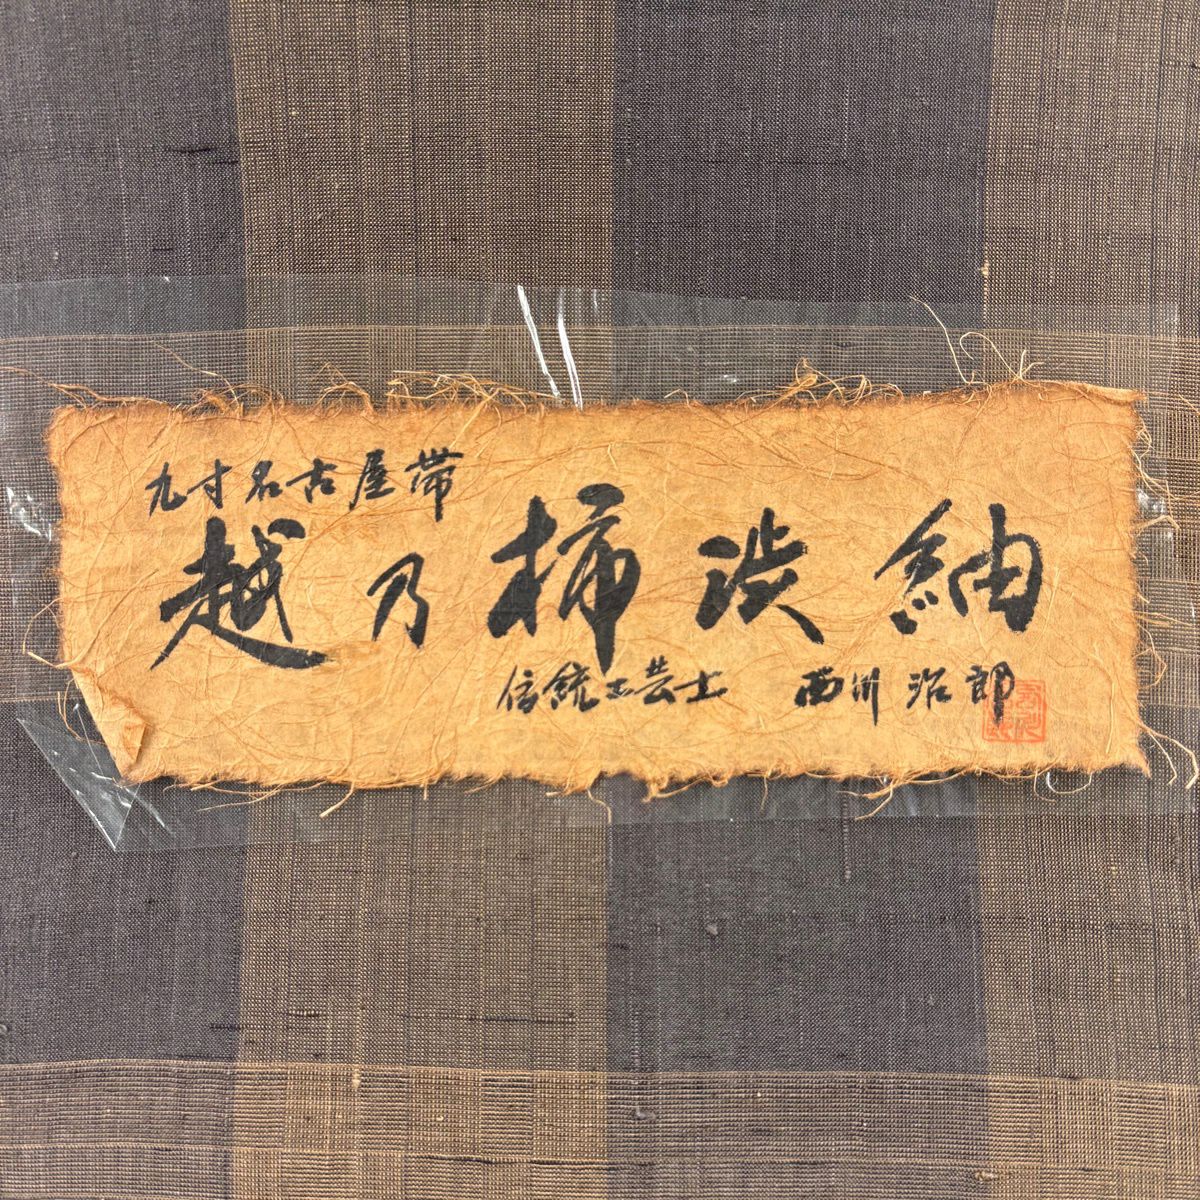 九寸名古屋帯
越乃柿渋紬
伝統工芸士 西川治郎